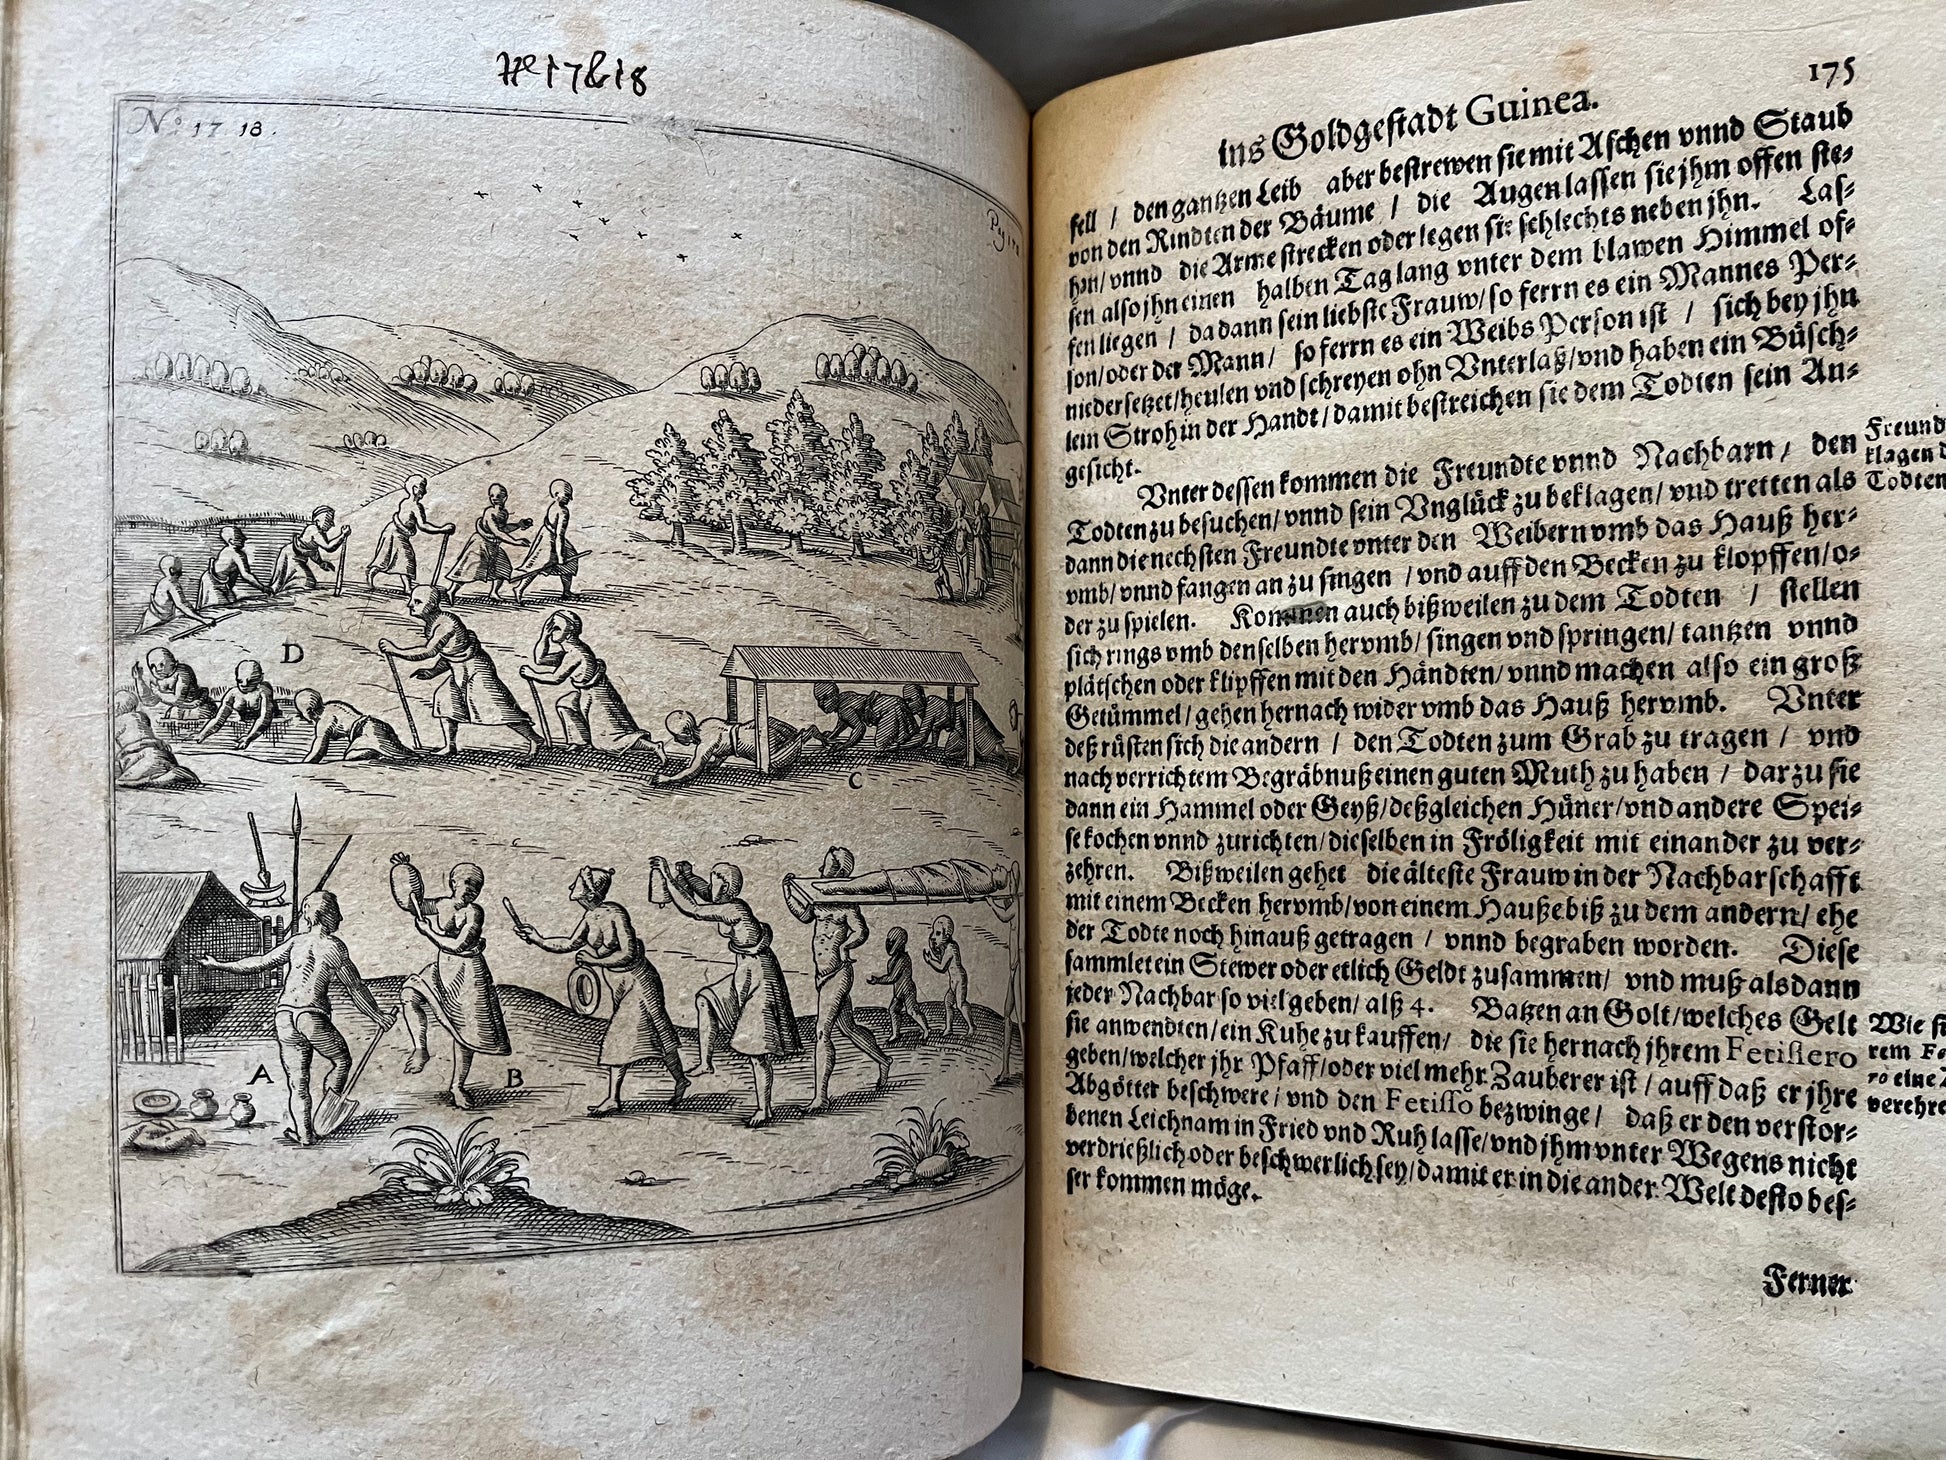 No 17 & 18
No. 17. 18.
Pag 175
D
C
A
B
175
ins Goldgestadt Guinea.
fell / den gantzen Leib aber bestrewen sie mit Aschen vnnd Staub
von den Rindten der Bäume / die Augen lassen sie jhm offen ste-
hen / vnnd die Arme strecken oder legen sie schlechts neben jhn. Las-
sen also jhn einen halben Tag lang vnter dem blawen Himmel of-
fen liegen / da dann sein liebste Frauw / so ferrn es ein Mannes Per-
son / oder der Mann / so ferrn es ein Weibs Person ist / sich bey jhn
niedersetzet / heulen vnd schreyen ohn Vnterlaß / vnd haben ein Büsch-
lein Stroh in der Handt / damit bestreichen sie dem Todten sein An-
gesicht.
Vnter dessen kommen die Freundte vnnd Nachbarn / den
Todten zu besuchen / vnnd sein Vnglück zu beklagen / vnd tretten als
dann die nechsten Freundte vnter den Weibern vmb das Hauß her-
vmb / vnnd fangen an zu singen / vnd auff den Becken zu klopffen / o-
der zu spielen. Kommen auch bißweilen zu dem Todten / stellen
sich rings vmb denselben hervmb / singen vnd springen / tantzen vnnd
plätschen oder klipffen mit den Händten / vnnd machen also ein groß
Getümmel / gehen hernach wider vmb das Hauß hervmb. Vnter
deß rüsten sich die andern / den Todten zum Grab zu tragen / vnd
nach verrichtem Begräbnuß einen guten Muth zu haben / darzu sie
dann ein Hammel oder Geyß / deßgleichen Hüner / vnd andere Spei-
se kochen vnnd zurichten / dieselben in Fröligkeit mit einander zu ver-
zehren. Bißweilen gehet die älteste Frauw in der Nachbarschafft
mit einem Becken hervmb / von einem Hauß biß zu dem andern / ehe
der Todte noch hinauß getragen / vnnd begraben worden. Diese
samlet ein Stewer oder etlich Geldt zusammen / vnd muß alsdann
jeder Nachbar so viel geben / alß 4. Batzen an Golt / welches Gelt
sie anwendten / ein Kuhe zu kauffen / die sie hernach jhrem Fetissero
geben / welcher jhr Pfaff / oder viel mehr Zauberer ist / auff daß er jhre
Abgötter beschwere / vnd den Fetisso bezwinge / daß er den verstor-
benen Leichnam in Fried vnd Ruh lasse / vnd jhm vnter Wegens nicht
verdrießlich oder beschwerlich sey / damit er in die ander Welt desto bes-
ser kommen möge.
Freund
klagen d
Todten
Wie si
rem Fe
ro eine
verehre
Ferner